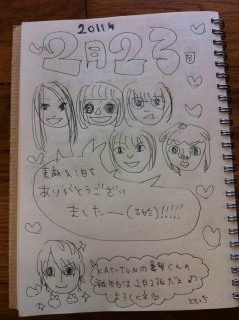 2011年
2月23日
素敵な1日を
ありがとうござい
ましたー(
)!!!!!
KAT-TUNの
くんの
誕生日は2月23日だよ
よろしくネ